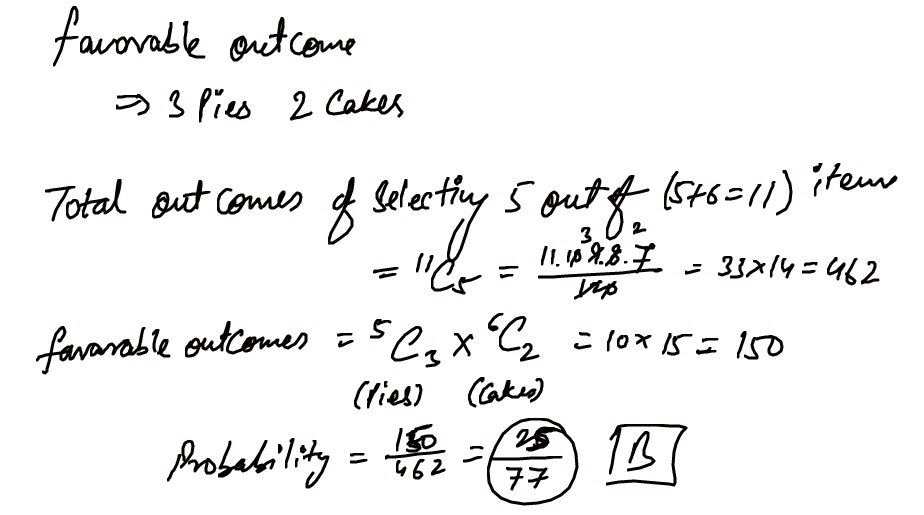 favorable outcome
⇒ 3 Pies 2 Cakes
Total outcomes of selecting 5 out of (5+6=11) items
= ¹¹C₅ = 11.10.9.8.7 / 120 = 33×14 = 462
3 2
favorable outcomes = ⁵C₃ × ⁶C₂ = 10 × 15 = 150
(Pies) (Cakes)
Probability = 150/462 = 25/77 B